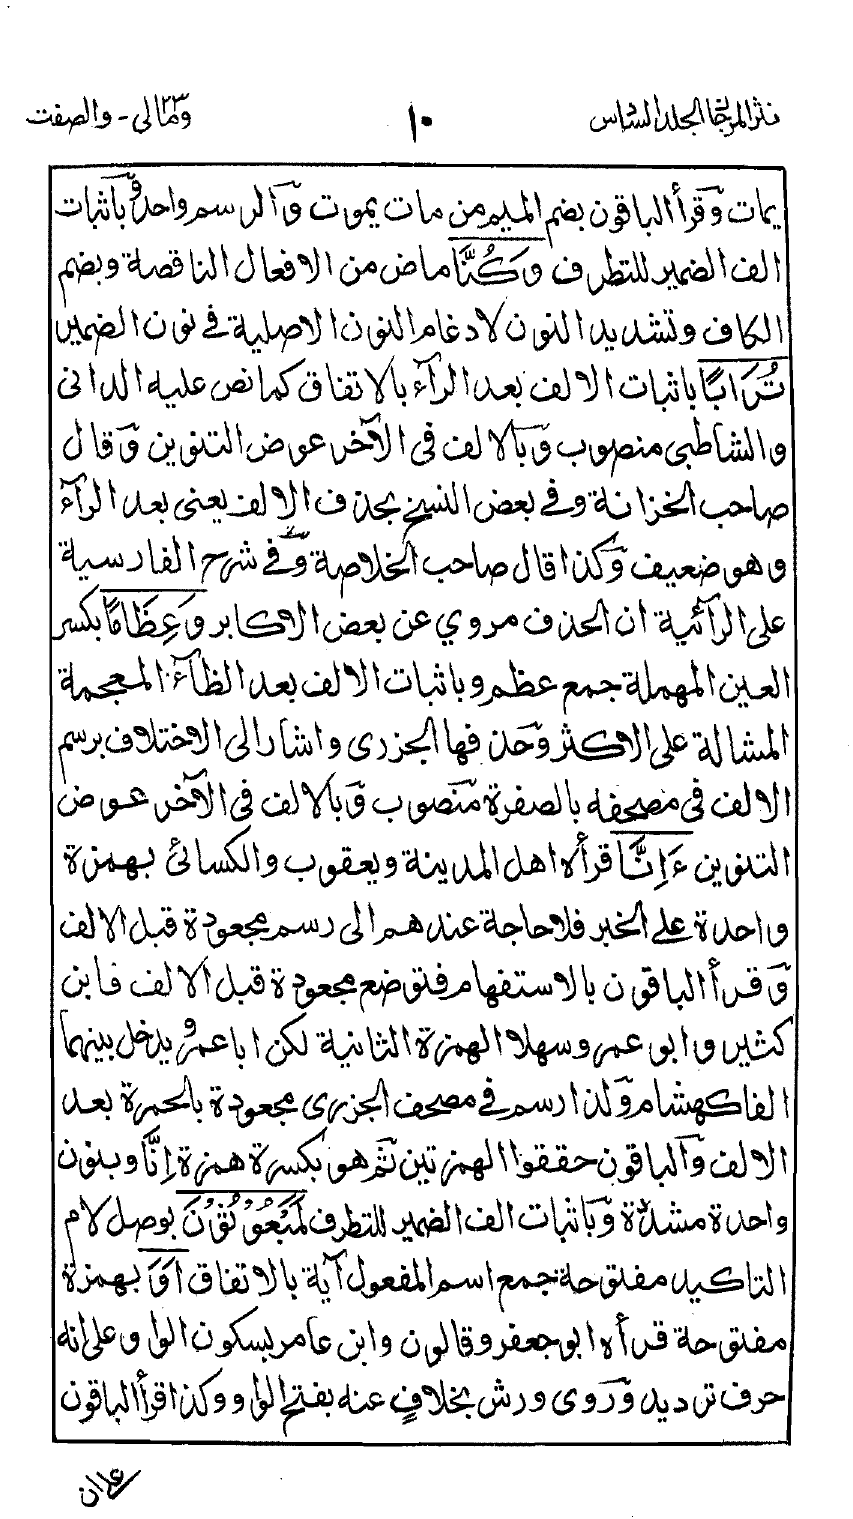 نثر المرجان الجلد السادس ١٠ ومالی ٢٣ - والصفت
يمات وقرأ الباقون بضم الميم من مات يموت والرسم واحد وباثبات
الف الضمير للتطرف وَكُنَّا ماض من الافعال الناقصة وبضم
الكاف وتشديد النون لادغام النون الاصلية في نون الضمير
تُرَابًا باثبات الالف بعد الرآء بالاتفاق كما نص عليه الدانی
والشاطبی منصوب وبالالف فی الآخر عوض التنوين وقال
صاحب الخزانة وفي بعض النسخ بحذف الالف يعنی بعد الرآء
وهو ضعيف وكذا قال صاحب الخلاصة وفي شرح الفارسية
علی الرآئية ان الحذف مروي عن بعض الاكابر وَعِظَامًا بكسر
العين المهملة جمع عظم وباثبات الالف بعد الظآء المعجمة
المشالة علی الاكثر وحذفها الجزری واشار الی الاختلاف برسم
الالف فی مصحفه بالصفرة منصوب وبالالف فی الآخر عوض
التنوين ءَاِنَّا قرأه اهل المدينة ويعقوب والكسائی بهمزة
واحدة علی الخبر فلا حاجة عندهم الی رسم مجعودة قبل الالف
وقرأ الباقون بالاستفهام فتوضع مجعودة قبل الالف فابن
كثير وابو عمرو سهلا الهمزة الثانية لكن ابا عمرو يدخل بينهما
الفا كهشام ولذا رسم في مصحف الجزری مجعودة بالحمرة بعد
الالف والباقون حققوا الهمزتين ثم هو بكسرة همزة اِنَّا وبنون
واحدة مشددة وباثبات الف الضمير للتطرف لَمَبْعُوْثُوْنَ بوصل لام
التاكيد مفتوحة جمع اسم المفعول آية بالاتفاق اَوَ بهمزة
مفتوحة قرأه ابو جعفر وقالون وابن عامر بسكون الواو علی انه
حرف ترديد وروی ورش بخلافٍ عنه بفتح الواو وكذا قرأ الباقون